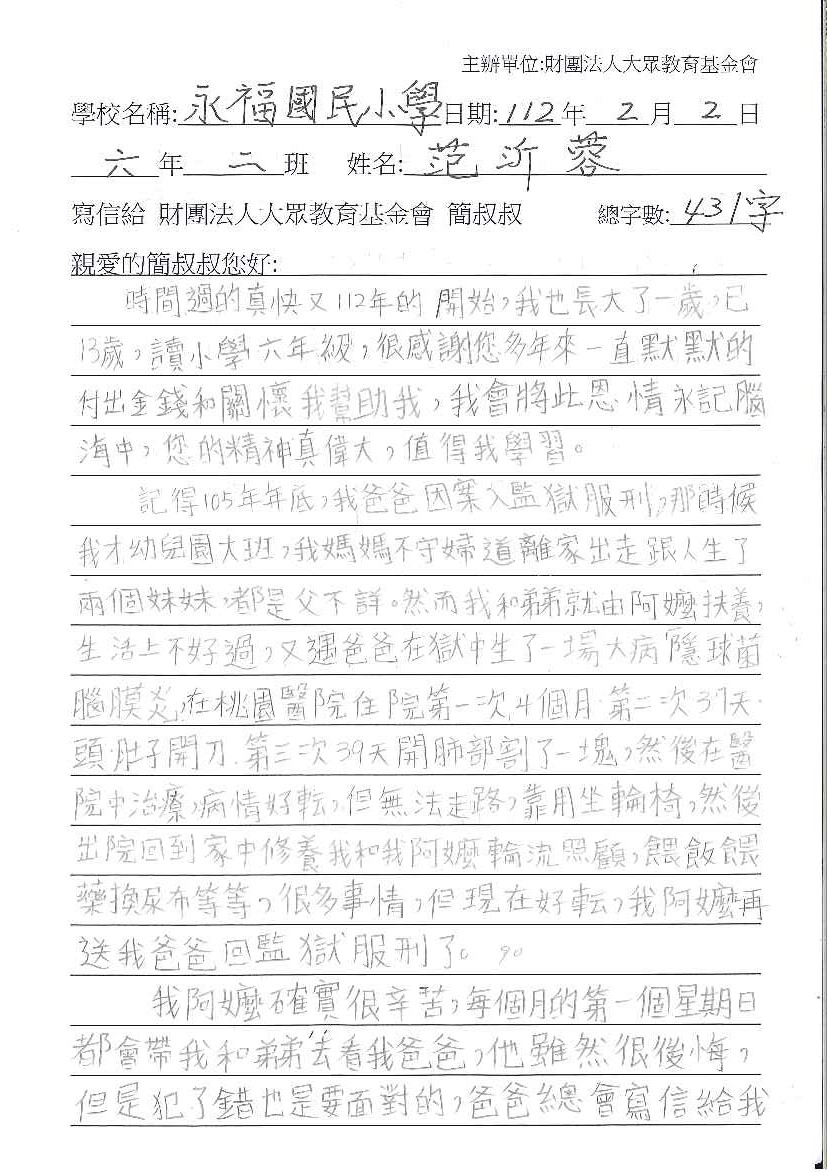 主辦單位:財團法人大眾教育基金會
學校名稱:永福國民小學日期:112年 2 月 2 日
六 年 二 班 姓名:范沂蓉
寫信給 財團法人大眾教育基金會 簡叔叔 總字數:431字
親愛的簡叔叔您好:
時間過的真快又112年的開始,我也長大了一歲,已
13歲,讀小學六年級,很感謝您多年來一直默默的
付出金錢和關懷我幫助我,我會將此恩情永記腦
海中,您的精神真偉大,值得我學習。
記得105年年底,我爸爸因案入監獄服刑,那時候
我才幼兒園大班,我媽媽不守婦道離家出走跟人生了
兩個妹妹,都是父不詳。然而我和弟弟就由阿嬤扶養,
生活上不好過,又遇爸爸在獄中生了一場大病隱球菌
腦膜炎,在桃園醫院住院第一次4個月.第二次37天.
頭.肚子開刀.第三次39天開肺部割了一塊,然後在醫
院中治療,病情好転,但無法走路,靠用坐輪椅,然後
出院回到家中修養我和我阿嬤輪流照顧,餵飯餵
藥換尿布等等,很多事情,但現在好転,我阿嬤再
送我爸爸回監獄服刑了。90
我阿嬤確實很辛苦,每個月的第一個星期日
都會帶我和弟弟去看我爸爸,他雖然很後悔,
但是犯了錯也是要面對的,爸爸總會寫信給我